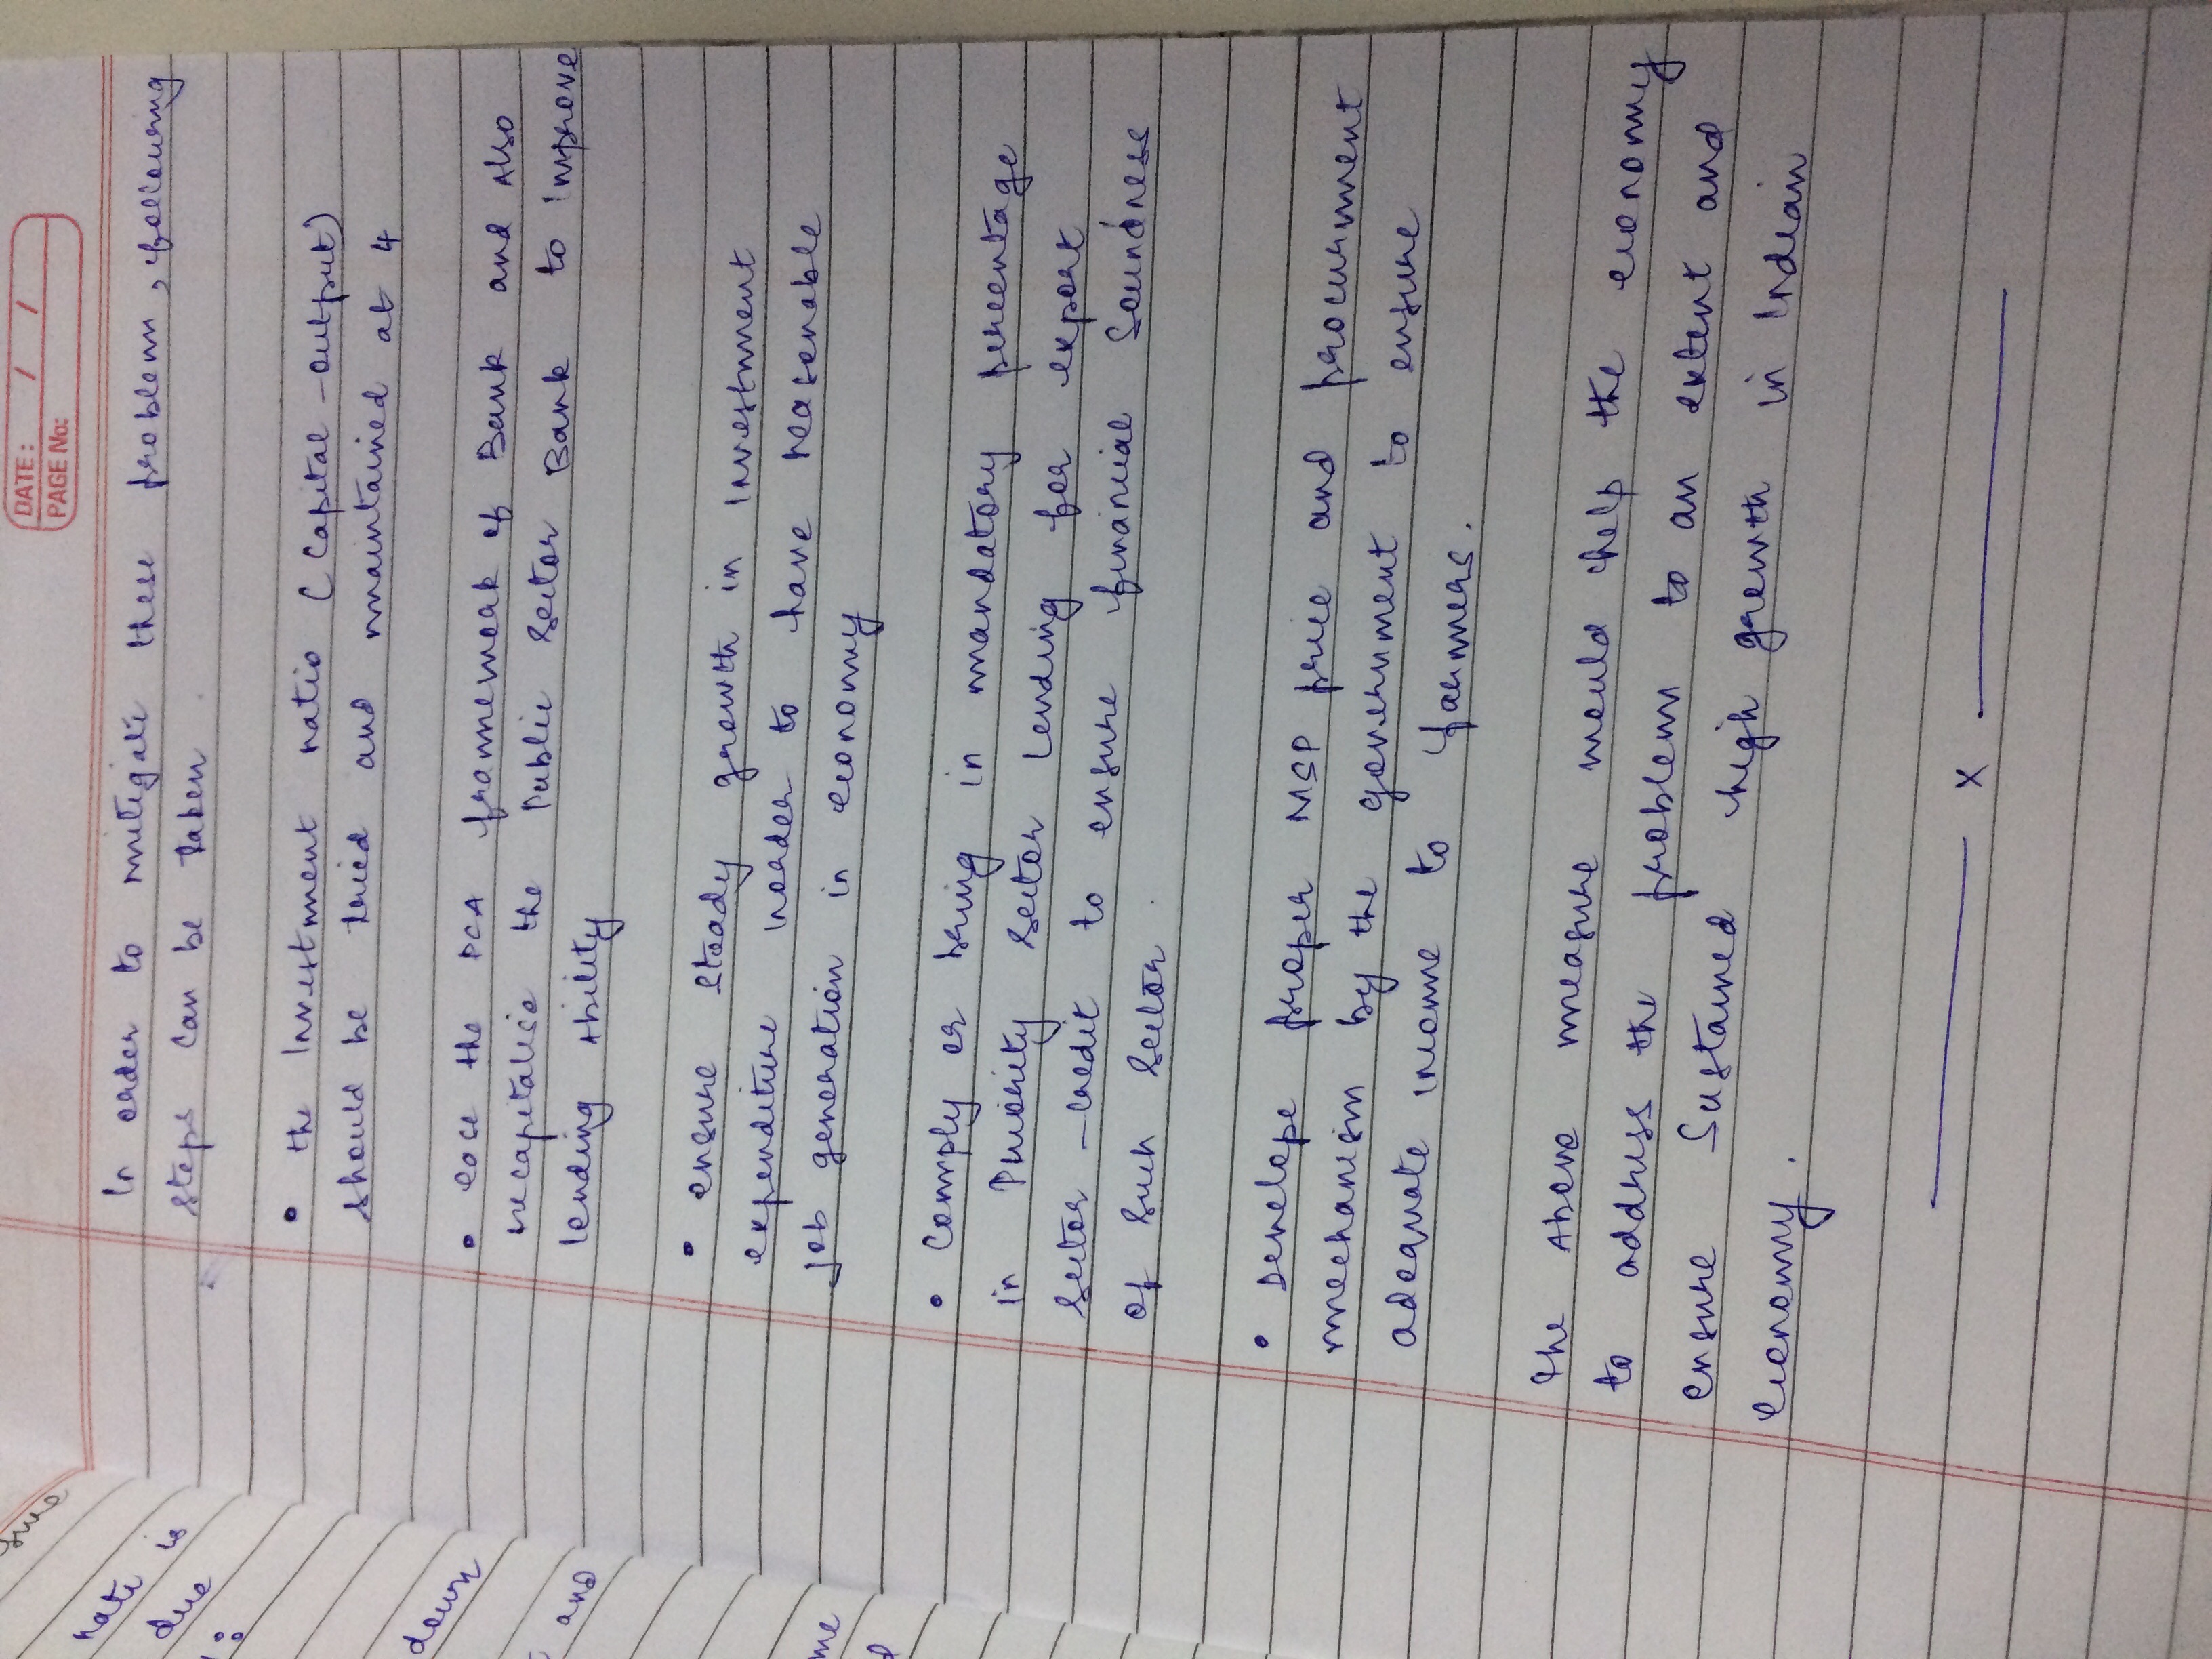 DATE: / /
PAGE No:
In order to mitigate these problem, following
steps can be taken.
• the Investment ratio (Capital-output)
should be tried and maintained at 4
• ease the PCA framework of Bank and Also
recapitalise the Public Sector Bank to Improve
lending Ability
• ensure steady growth in Investment
expenditure Inorder to have reasonable
Job generation in economy
• Comply or bring in mandatory percentage
in Priority Sector Lending for export
Sector - credit to ensure financial Soundness
of Such Sector.
• Develope proper MSP price and procurnment
mechanism by the government to ensure
adequate income to farmers.
the Above measure would help the economy
to address the problem to an extent and
ensure Sustained high growth in Indian
Economy.
x
rate is
due
down
and